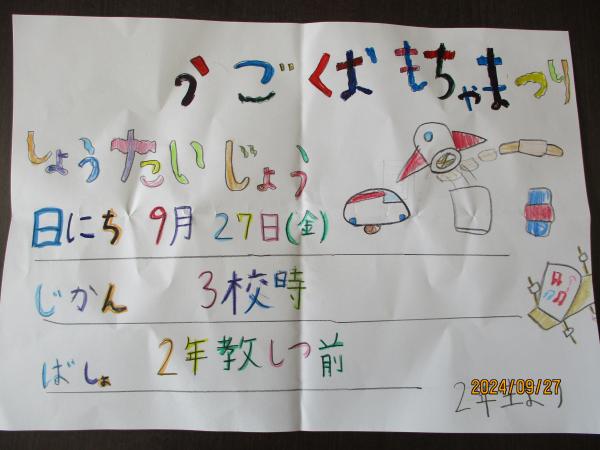 うごくおもちゃまつり
しょうたいじょう
日にち 9月27日(金)
じかん 3校時
ばしょ 2年教しつ前
2024/09/27
2年生より